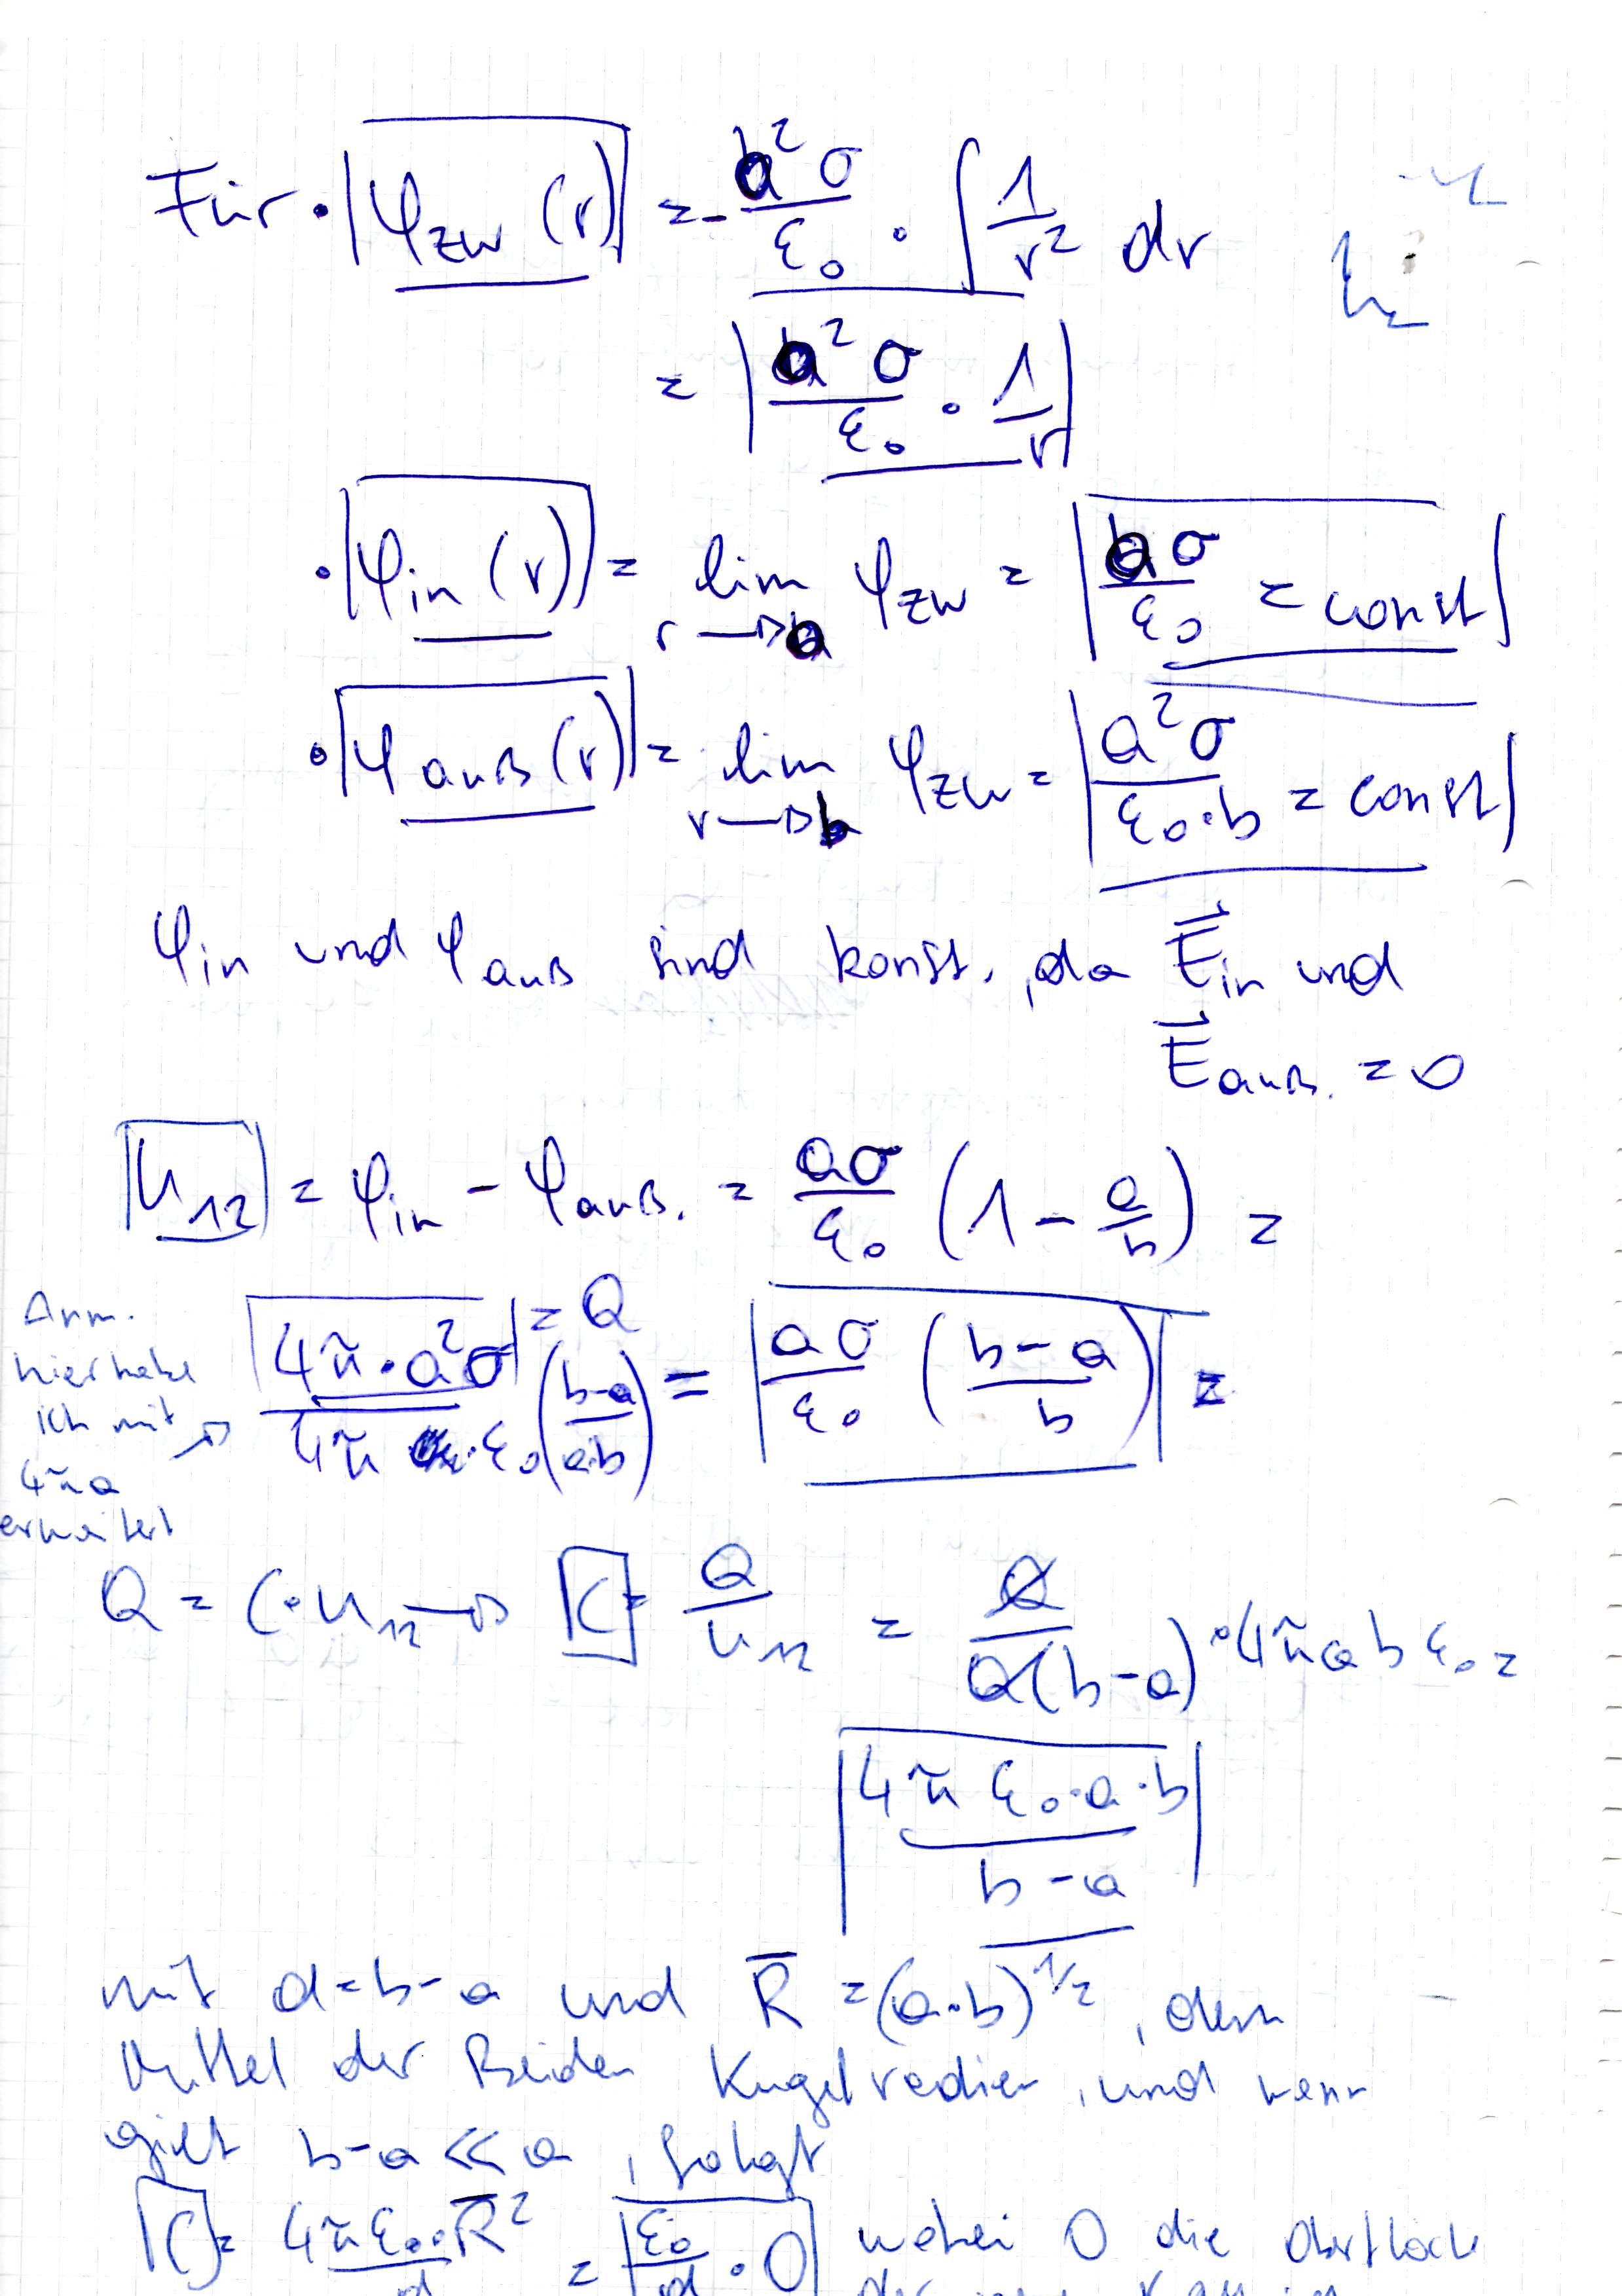 Für · φ_zw (r) = - a²σ/ε₀ · ∫ 1/r² dr
= a²σ/ε₀ · 1/r
· φ_in (r) = lim r→a φ_zw = aσ/ε₀ = const
· φ_auß (r) = lim r→b φ_zw = a²σ/(ε₀·b) = const
φ_in und φ_auß sind konst., da E⃗_in und
E⃗_auß. = 0
U₁₂ = φ_in - φ_auß. = aσ/ε₀ (1 - a/b) =
4π·a²σ = Q / 4π ε₀ ((b-a)/(a·b)) = aσ/ε₀ ((b-a)/b) =
Anm.
hier habe
ich mit
4πa
erweitert
Q = C·U₁₂ → C = Q/U₁₂ = Q/(Q(b-a)) · 4πabε₀ =
4πε₀·a·b / (b-a)
mit d=b-a und R̄ = (a·b)^1/2, dem
Mittel der Beiden Kugelradien, und wenn
gilt b-a ≪ a, folgt
C = 4πε₀·R̄²/d = ε₀/d · O wobei O die Oberfläche